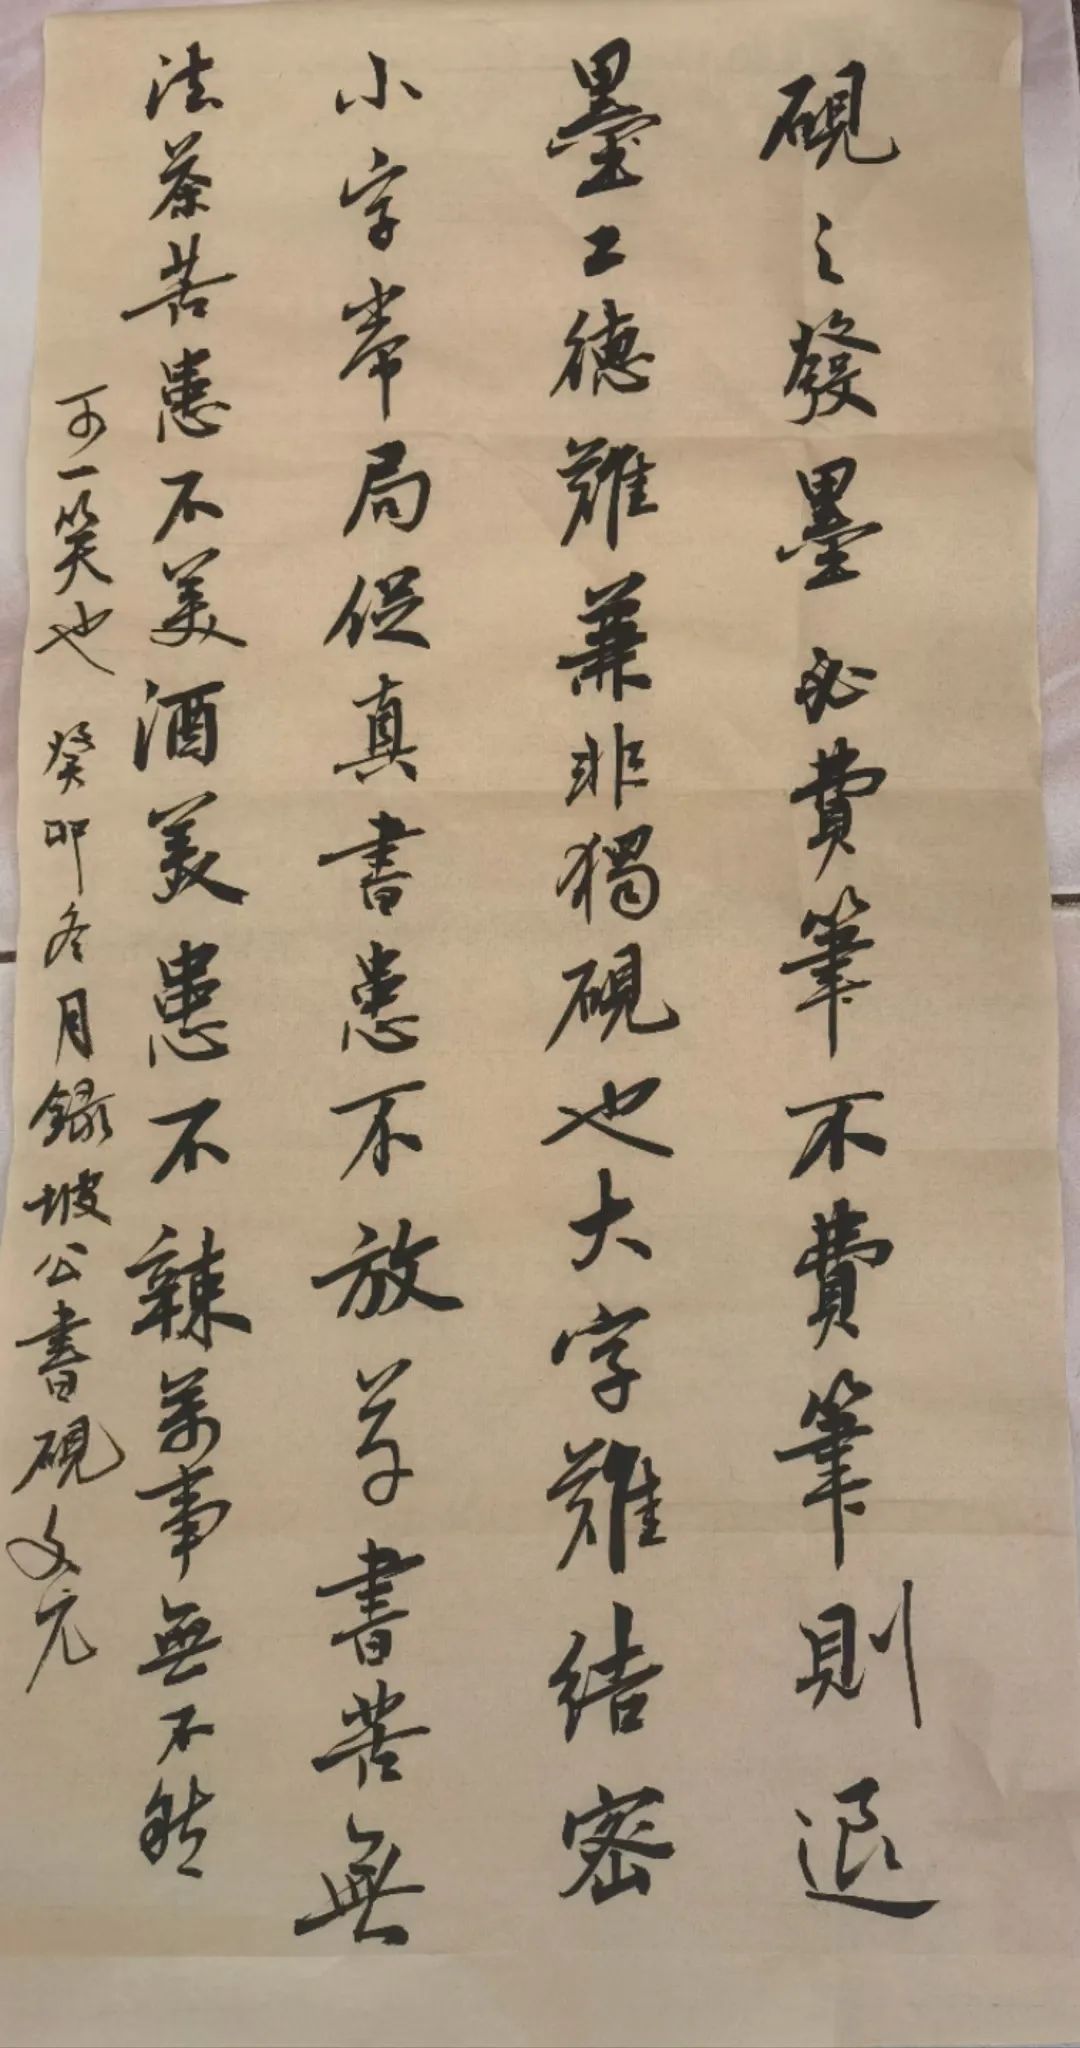 硯之發墨必費筆不費筆則退
墨工德難兼非獨硯也大字難結密
小字常局促真書患不放草書苦無
法茶苦患不美酒美患不辣萬事無不然
可一笑也 癸卯冬月錄坡公書硯 文元